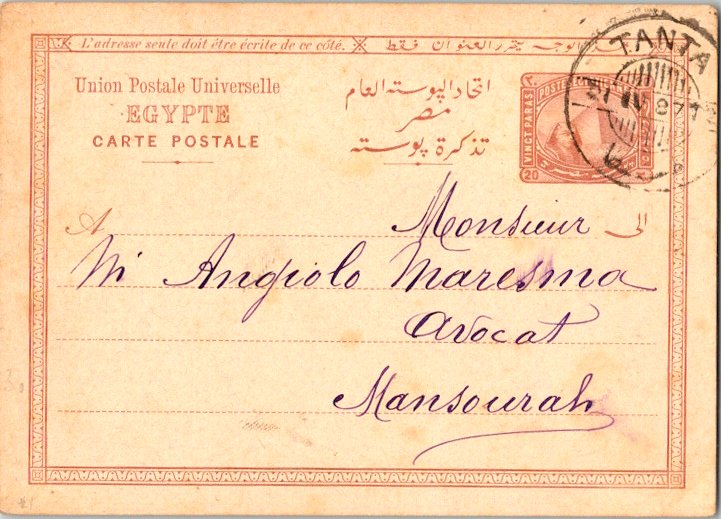 L'adresse seule doit être écrite de ce côté. الوجه يتحرر العنوان فقط
Union Postale Universelle
EGYPTE
CARTE POSTALE
اتحاد البوسته العام
مصر
تذكرة بوسته
VINGT PARAS
20
POSTE
TANTA
21 IV 87
A
الى
Monsieur
M Angiolo Maresma
Avocat
Mansourah